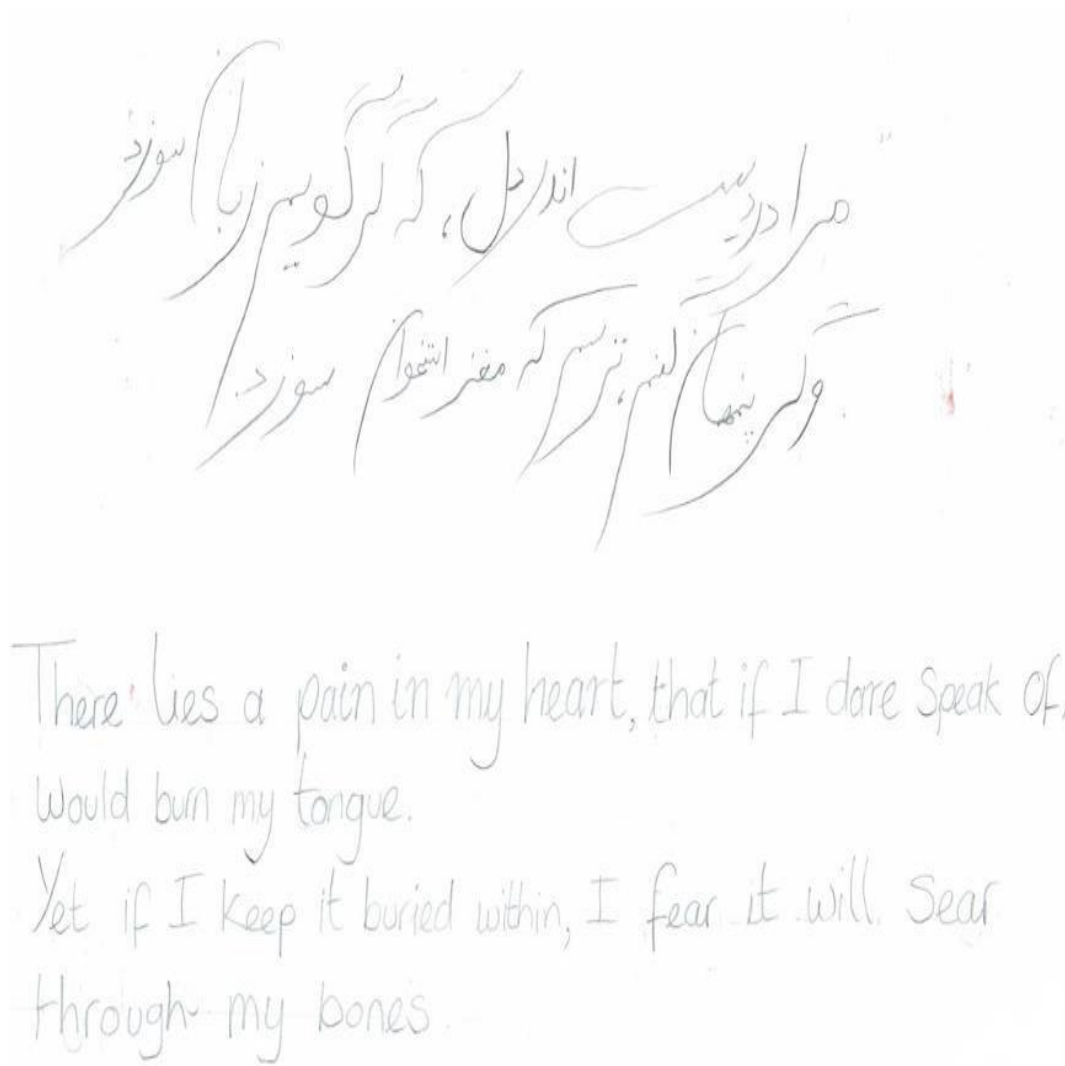 مرا دردیست اندر دل، که گر گویم زبان سوزد
وگر پنهان کنم، ترسم که مغز استخوان سوزد.
There lies a pain in my heart, that if I dare speak of,
would burn my tongue.
Yet if I keep it buried within, I fear it will sear
through my bones.